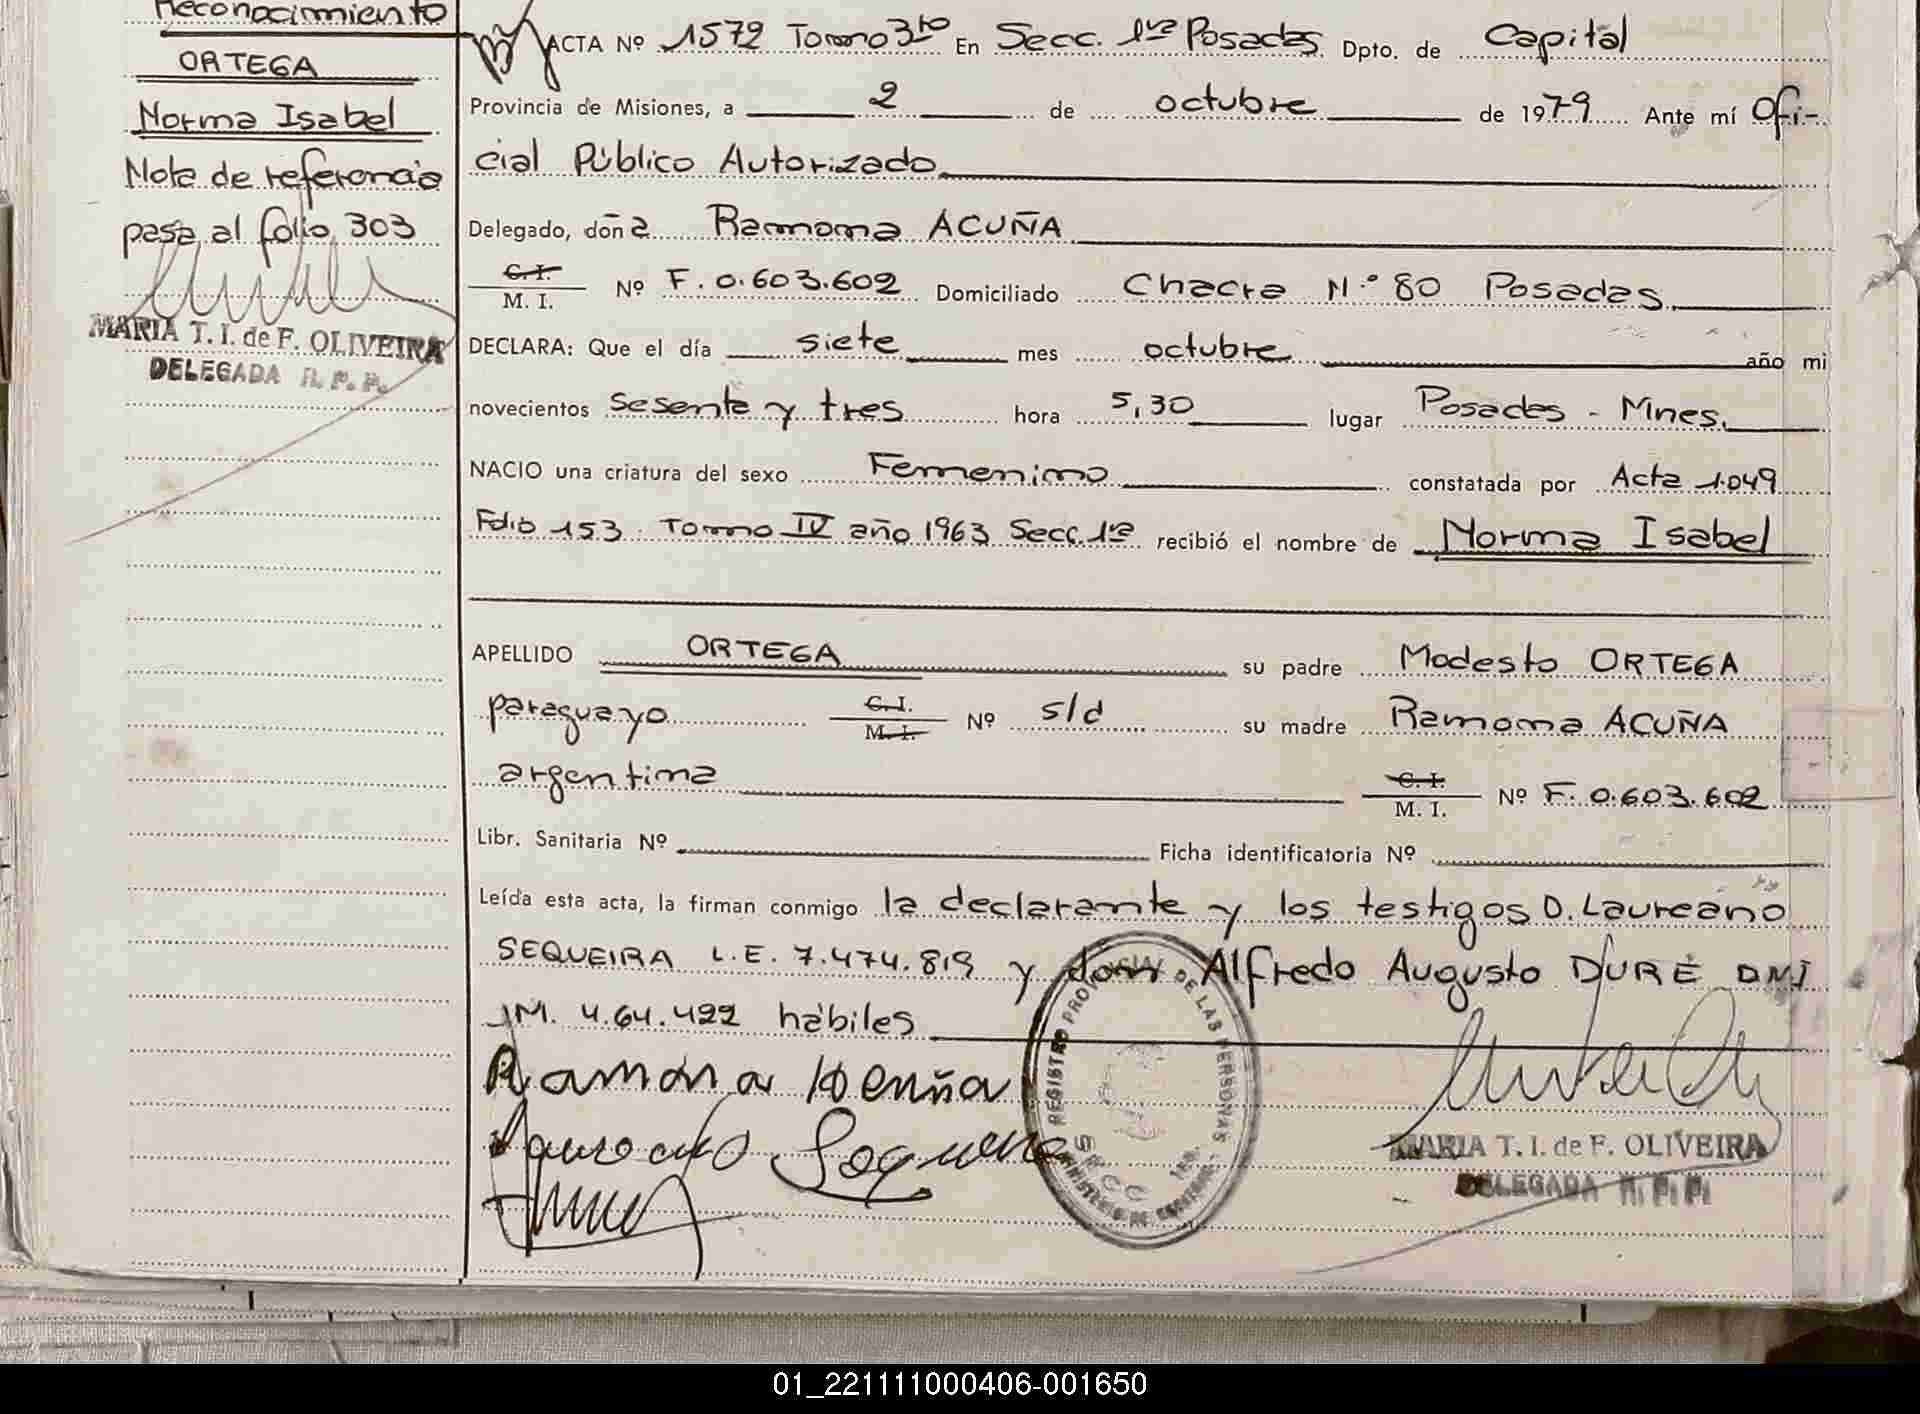 Reconocimiento
ORTEGA
Norma Isabel
Nota de referencia
pasa al folio 303
MARIA T. I. de F. OLIVEIRA
DELEGADA R. P. P.
ACTA Nº 1572 Tomo 3ro En Secc. 1ra Posadas Dpto. de Capital
Provincia de Misiones, a 2 de octubre de 1979 Ante mí Ofi-
cial Público Autorizado
Delegado, doña Ramona ACUÑA
C. I.
M. I. Nº F. 0.603.602 Domiciliado Chacra N.º 80 Posadas
DECLARA: Que el día siete mes octubre año mi
novecientos sesenta y tres hora 5,30 lugar Posadas - Mnes.
NACIO una criatura del sexo Femenino constatada por Acta 1.049
Folio 153 Tomo IV año 1963 Secc. 1ra recibió el nombre de Norma Isabel
APELLIDO ORTEGA su padre Modesto ORTEGA
paraguayo C. I. M. I. Nº s/d su madre Ramona ACUÑA
argentina C. I. M. I. Nº F. 0.603.602
Libr. Sanitaria Nº Ficha identificatoria Nº
Leída esta acta, la firman conmigo la declarante y los testigos D. Laureano
SEQUEIRA L.E. 7.474.819 y don Alfredo Augusto DURÉ DNI
M. 4.64.422 hábiles
Ramona Acuña
REGISTRO PROVINCIAL DE LAS PERSONAS
SECC 1RA.
MINISTERIO DE GOBIERNO
MARIA T. I. de F. OLIVEIRA
DELEGADA R. P. P.
01_221111000406-001650